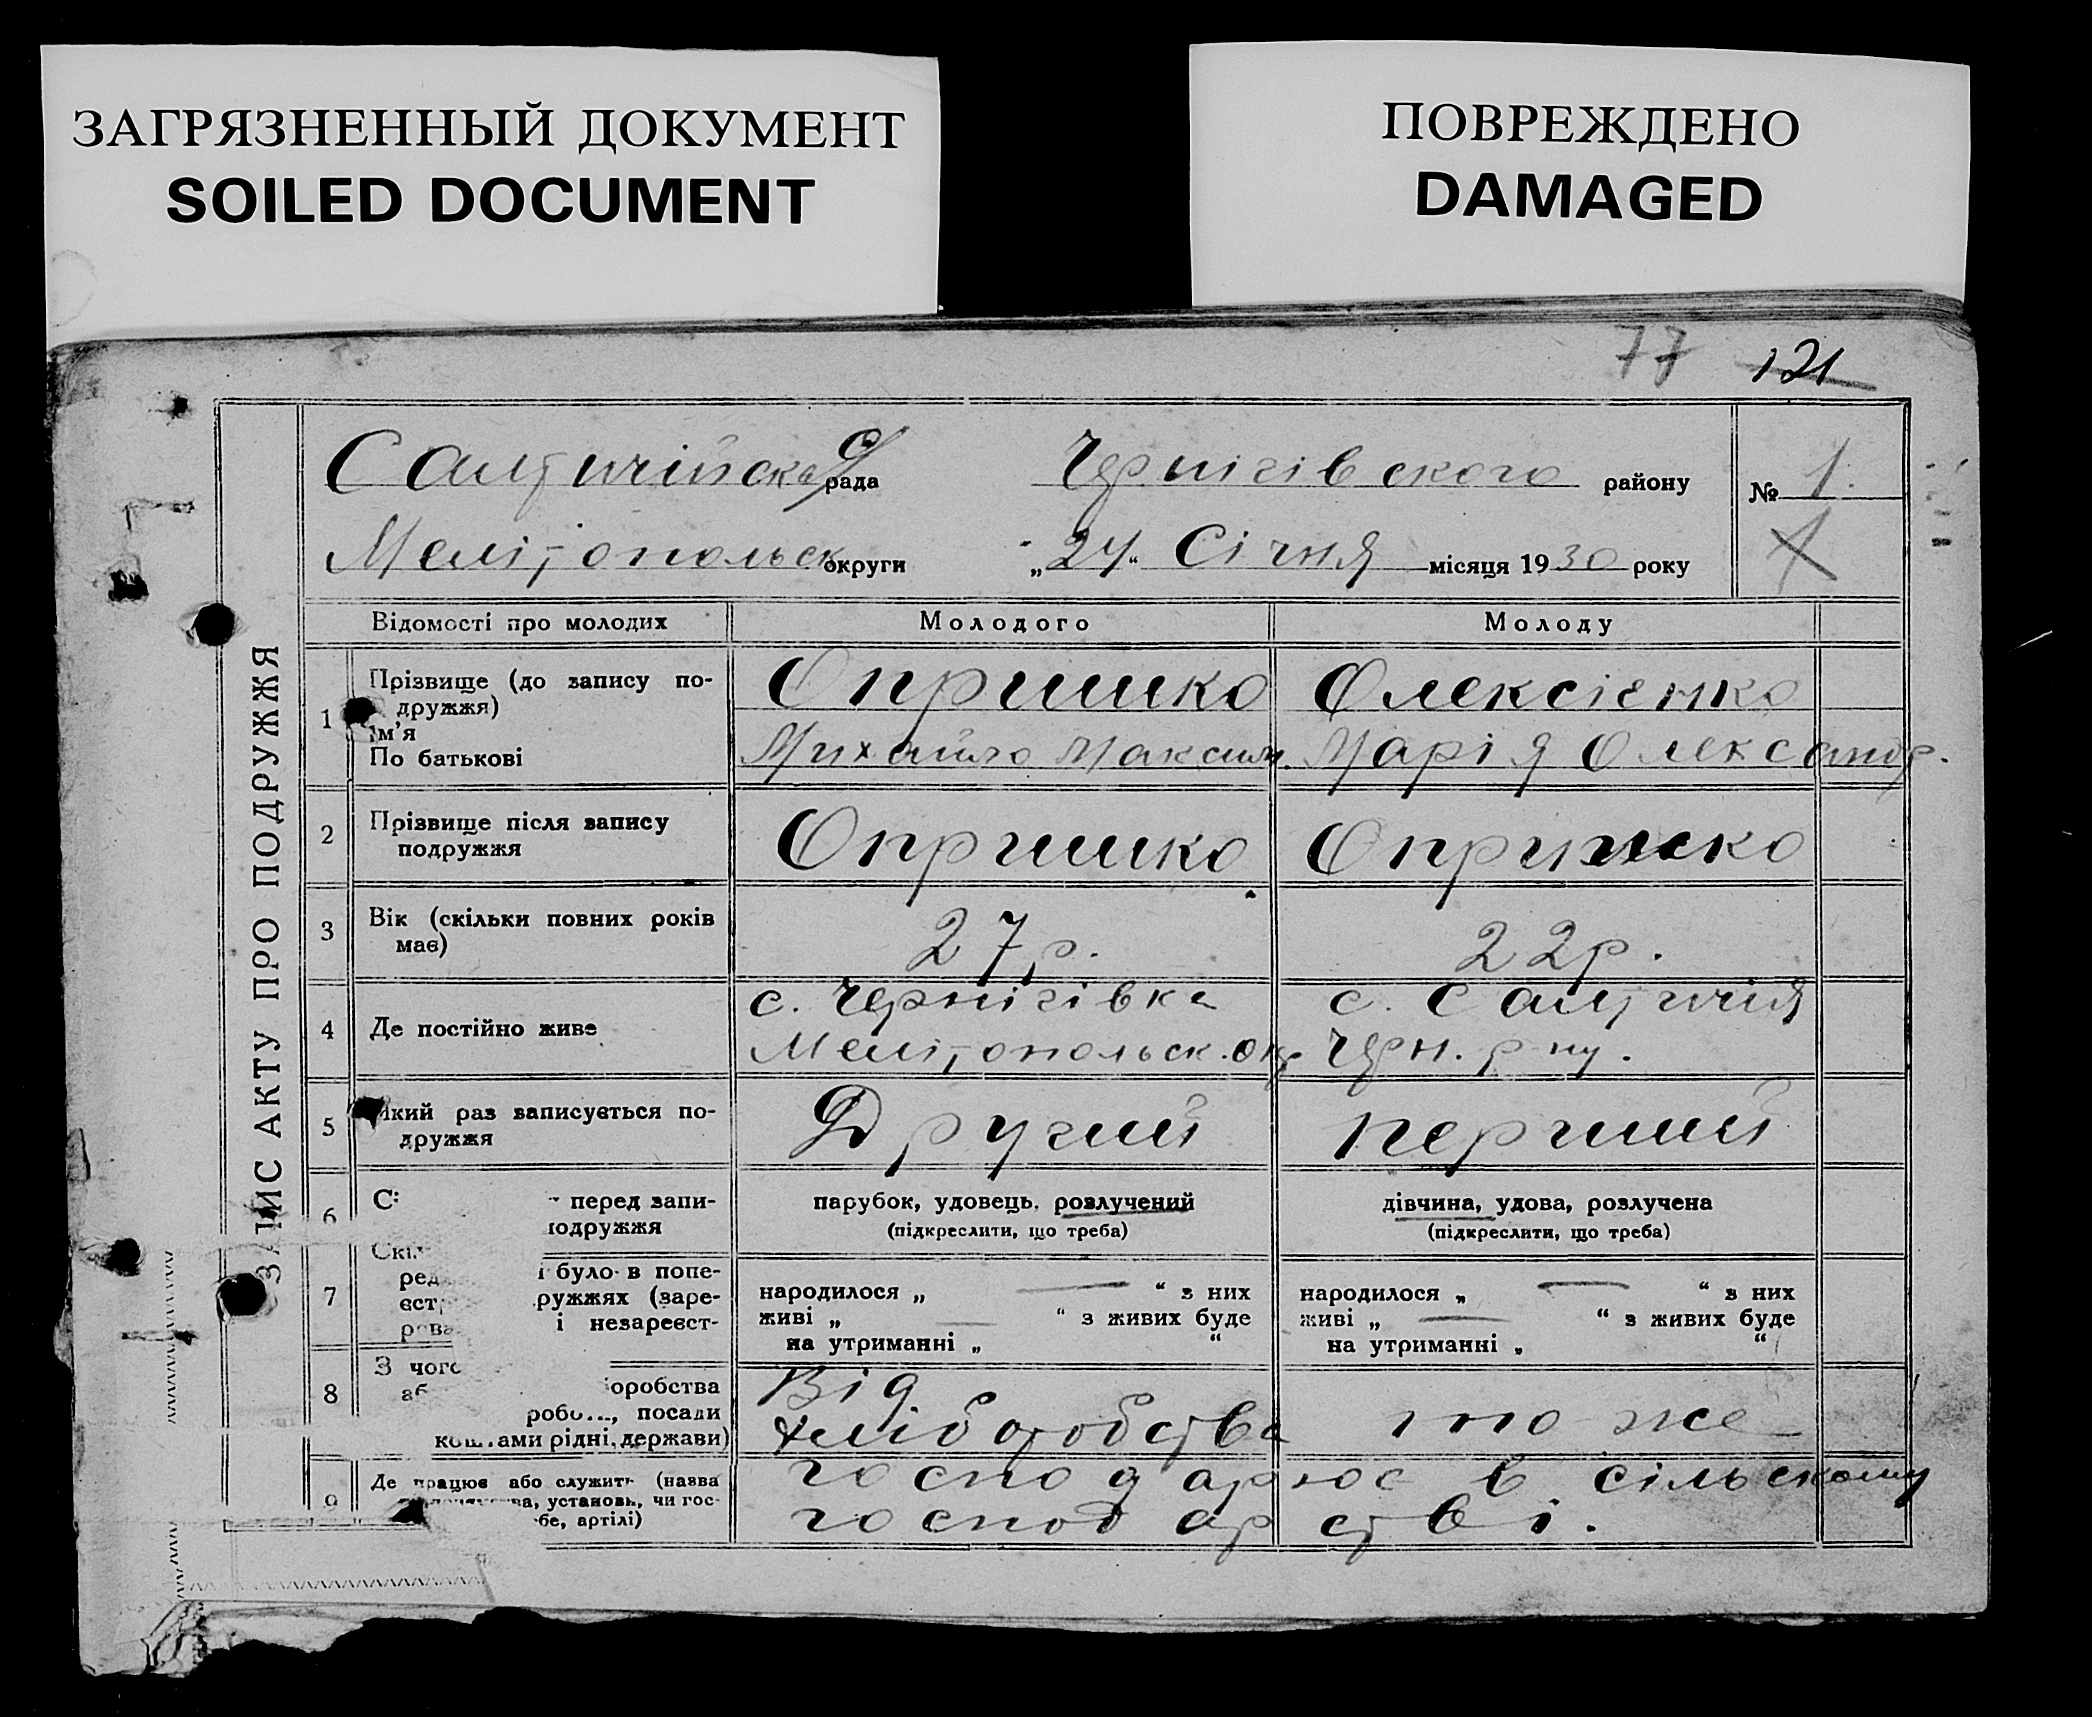 ЗАГРЯЗНЕННЫЙ ДОКУМЕНТ
SOILED DOCUMENT
ПОВРЕЖДЕНО
DAMAGED
77 121
ЗАПИС АКТУ ПРО ПОДРУЖЖЯ
Салтичійска с/рада Чернігівского району № 1.
Мелітопольск округи „24“ Січня місяця 1930 року 1
Відомості про молодих Молодого Молоду
1 Прізвище (до запису по-
дружжя)
Ім’я
По батькові
Опришко Олексієнко
Михайло Максим. Марія Олександр.
2 Прізвище після запису
подружжя
Опришко Опришко
3 Вік (скільки повних років
має)
27 р. 22 р.
4 Де постійно живе
с. Чернігівка
Мелітопольск. окр.
с. Салтичія
Черн. р-ну.
5 Який раз записується по-
дружжя
Другий перший
6 перед запи-
подружжя
парубок, удовець, розлучений
(підкреслити, що треба)
дівчина, удова, розлучена
(підкреслити, що треба)
7 було в попе-
ружжях (заре-
і незареєст-
народилося „ — “ з них
живі „ — “ з живих буде
на утриманні „ “
народилося „ — “ з них
живі „ — “ з живих буде
на утриманні „ “
8 З чого
оробства
посади
коштами рідні, держави)
Від
хліборобства
то же
9 Де працює або служить (назва
установь, чи гос-
бе, артілі)
господарює в сільському
господарстві.